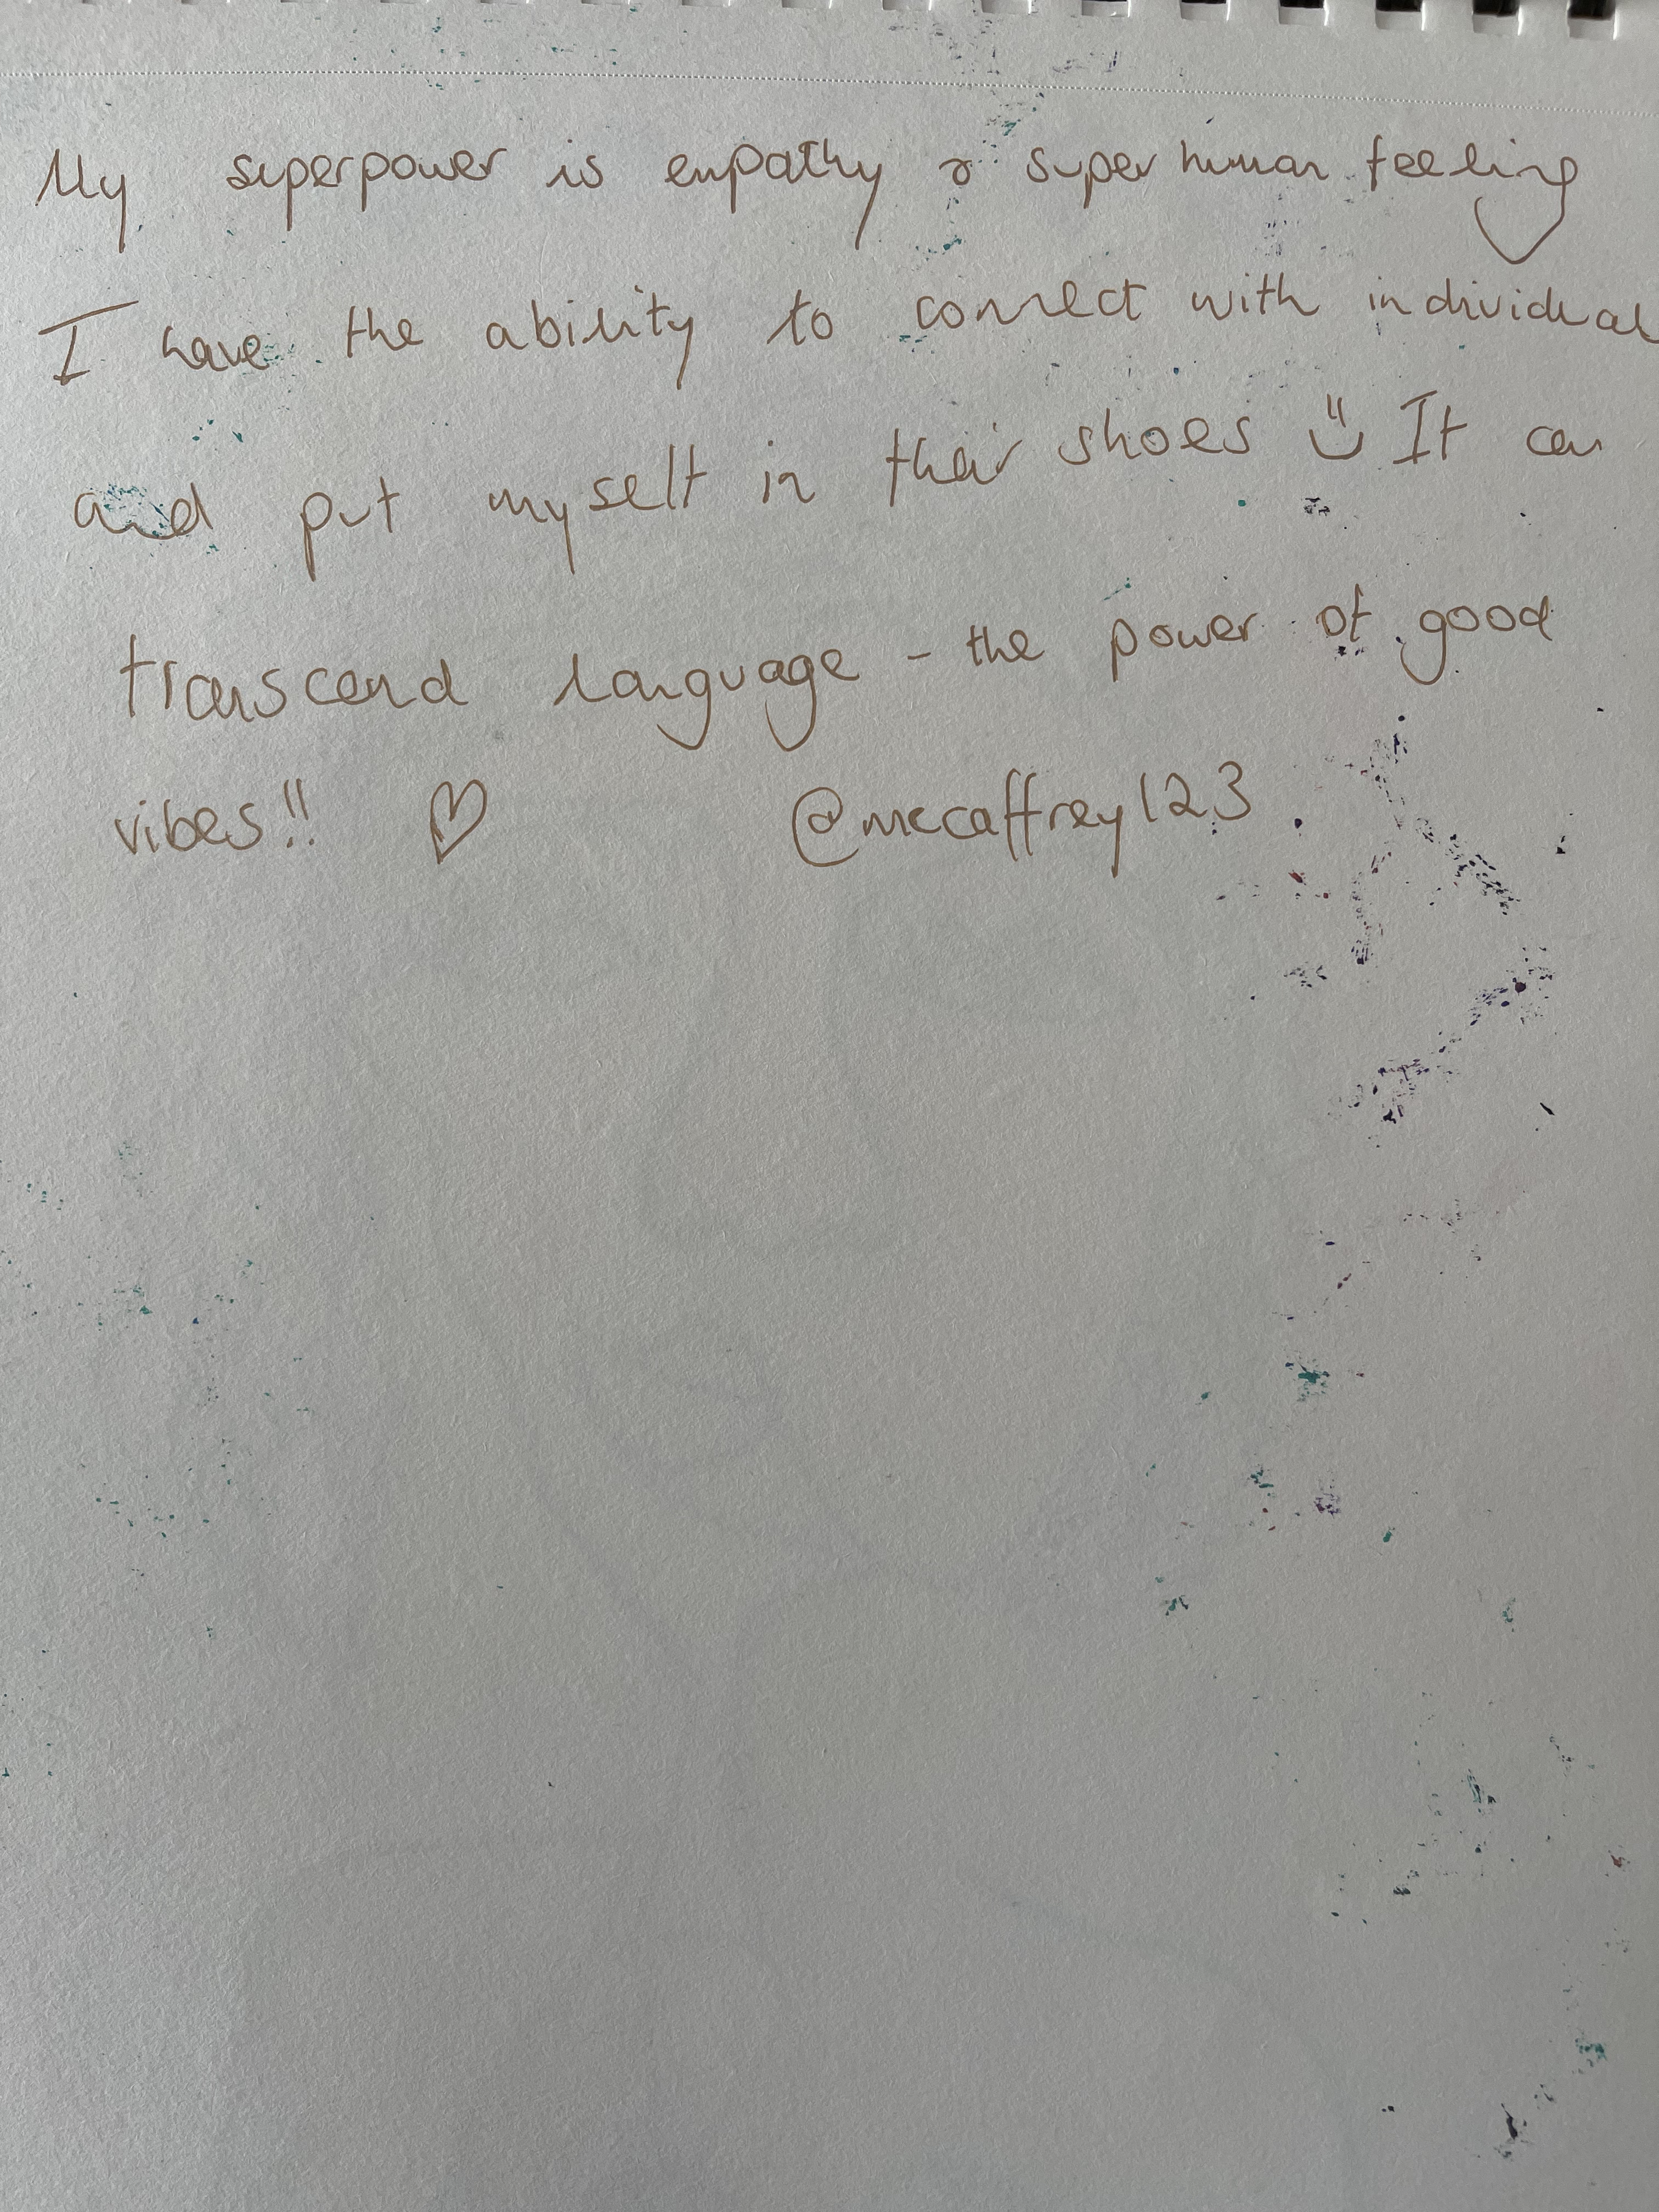 My superpower is empathy & super human feeling
I have the ability to connect with individual
and put myself in their shoes ü It can
transcend language - the power of good
vibes!! ♡ @mccaffrey123